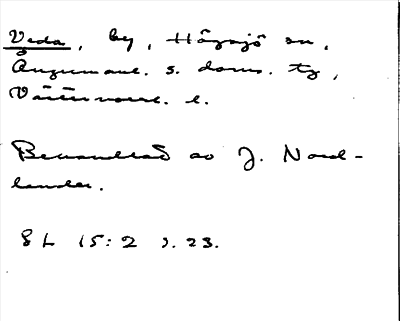 Veda, by, Högsjö sn,
Ångermanl. s. doms. tg,
Västernorrl. l.
Behandlad av J. Nord-
lander.
SL 15:2 s. 23.